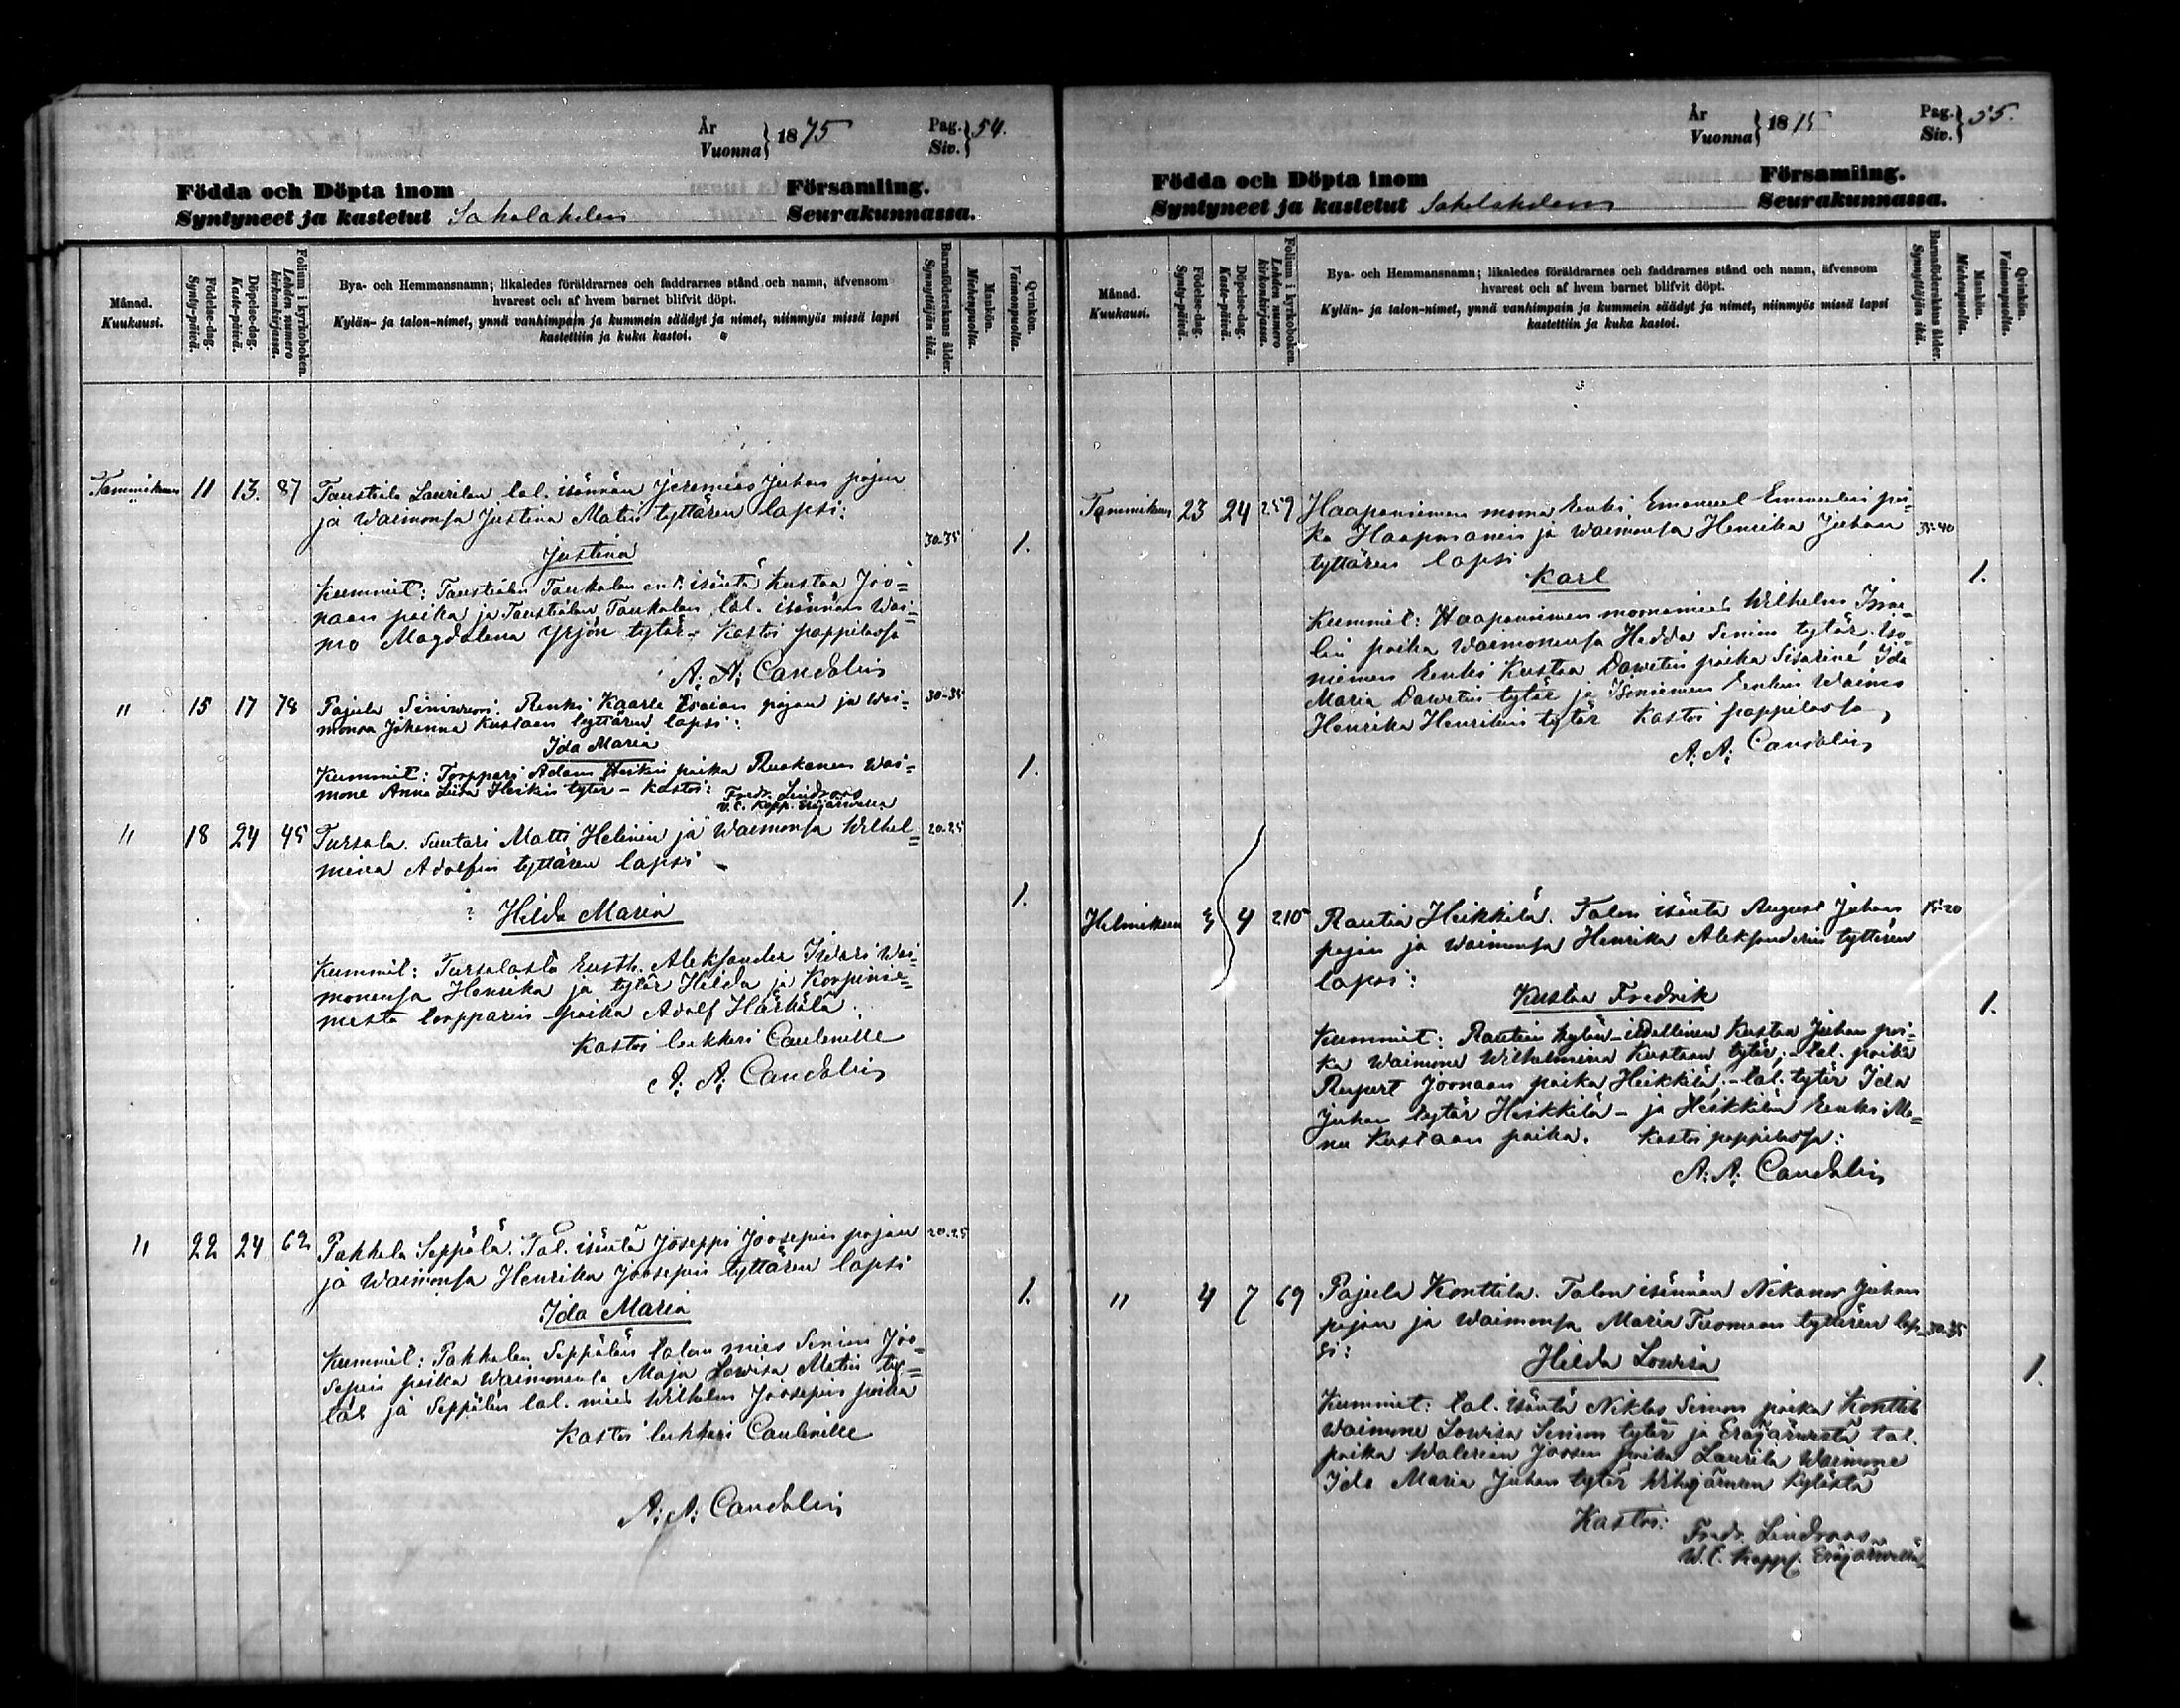 År
Vuonna } 1875 Pag.
Siv. } 54.
Födda och Döpta inom Församling.
Syntyneet ja kastetut Sahalahden Seurakunnassa.
Månad.
Kuukausi.
Födelse-dag.
Synty-päivä.
Döpelse-dag.
Kaste-päivä.
Folium i kyrkoboken.
Lehden numero
kirkonkirjassa.
Bya- och Hemmansnamn; likaledes föräldrarnes och faddrarnes stånd och namn, äfvensom
hvarest och af hvem barnet blifvit döpt.
Kylän- ja talon-nimet, ynnä vanhimpain ja kummein säädyt ja nimet, niinmyös missä lapsi
kastettiin ja kuka kastoi.
Barnaföderskans ålder.
Synnyttäjän ikä.
Mankön.
Miehenpuolta.
Qvinkön.
Vaimonpuolta.
Tammikuun 11 13. 87 Taustiala Laurilan tal. isännän Jeremias Juhan pojan
ja Waimonsa Justina Matin tyttären lapsi:
30-35
Justina 1.
Kummit: Taustialan Taukalan ent. isäntä Kustaa Joo=
naan poika ja Taustialan Taukalan tal. isännän Wai=
mo Magdalena Yrjön tytär - Kastoi pappilassa
A. A. Candolin
" 15 17 78 Pajula Renki Kaarle Esaian pojan ja Wai= 30-35
monsa Johanna Kustaan tyttären lapsi:
Ida Maria
Kummit: Torppari Adam Heikin poika Ruokonen Wai= 1.
mone Anna Liisa Heikin tytär - Kastoi: Fredr. Lindroos
V. C. Kapp. Eräjärwellä
" 18 24 45 Tursala. Suutari Matti Helinin ja Waimonsa Wilhel= 20-25
mina Adolfin tyttären lapsi -
Hilda Maria 1.
Kummit: Tursalasta Alexander Isdari Wai=
monensa Henrika ja tytär Hilda ja Korpinie=
mestä torpparin poika Adolf Härkälä.
Kastoi lukkari Caulenille
A. A. Candolin
" 22 24 62 Pakkala Seppälä. Tal. isäntä Joseppi Joosepin pojan 20-25
ja Waimonsa Henrika Joosepin tyttären lapsi
Ida Maria 1.
Kummit: Pakkalan Seppälän talon mies Simim Joo=
sepin poika Waimonensa Maja Lowisa Matin ty=
tär ja Seppälän tal. mies Wilhelm Joosepin poika
Kastoi lukkari Caulenille
A. A. Candolin
År
Vuonna } 1875 Pag.
Siv. } 55.
Födda och Döpta inom Församling.
Syntyneet ja kastetut Sahalahden Seurakunnassa.
Månad.
Kuukausi.
Födelse-dag.
Synty-päivä.
Döpelse-dag.
Kaste-päivä.
Folium i kyrkoboken.
Lehden numero
kirkonkirjassa.
Bya- och Hemmansnamn; likaledes föräldrarnes och faddrarnes stånd och namn, äfvensom
hvarest och af hvem barnet blifvit döpt.
Kylän- ja talon-nimet, ynnä vanhimpain ja kummein säädyt ja nimet, niinmyös missä lapsi
kastettiin ja kuka kastoi.
Barnaföderskans ålder.
Synnyttäjän ikä.
Mankön.
Miehenpuolta.
Qvinkön.
Vaimonpuolta.
Tammikuun 23 24 259 Haapaniemen moma Renki Emanuel Emanuelin poi=
ka Haapasanen ja Waimonsa Henrika Juhan 35-40
tyttären lapsi
Karl 1.
Kummit: Haapaniemen moonamies Wilhelm Isra=
lin poika Waimonensa Hedda Simim tytär. Iso=
niemen Renki Kustaa Dawetin poika Sisarine Ida
Maria Dawetin tytär ja Isoniemen Renkin Waimo
Henrika Henrikin tytär Kastoi pappilassa,
A. A. Candolin
Helmikuun 3 4 210 Rautia Heikkilä. Talon isäntä August Juhan 15-20
pojan ja Waimonsa Henrika Aleksanderin tyttären
lapsi:
Kustaa Fredrik 1.
Kummit: Rautian kylän itsellinen Kustaa Juhan poi=
ka Waimone Wilhelmina Kustaan tytär; - tal. poika
Rupert Joonaan poika Heikkilä; - tal. tytär Ida
Juhan tytär Heikkilä - ja Heikkilän Renki Ma=
nu Kustaan poika. Kastoi pappilassa:
A. A. Candolin
" 4 7 69 Pajula Konttila. Talon isännän Nikanor Juhan
pojan ja Waimonsa Maria Tuomaan tyttären lap= 30-35
si:
Hilda Lowisa 1.
Kummit: tal. isäntä Niklas Simim poika Konttila
Waimone Lowisa Simim tytär ja Eräjärwestä tal.
poika Walerian Joosen poika Laurila Waimone
Ida Maria Juhan tytär Wihajärwen kylästä
Kastoi: Fredr. Lindroos
W. C. Kappl. Eräjärwellä